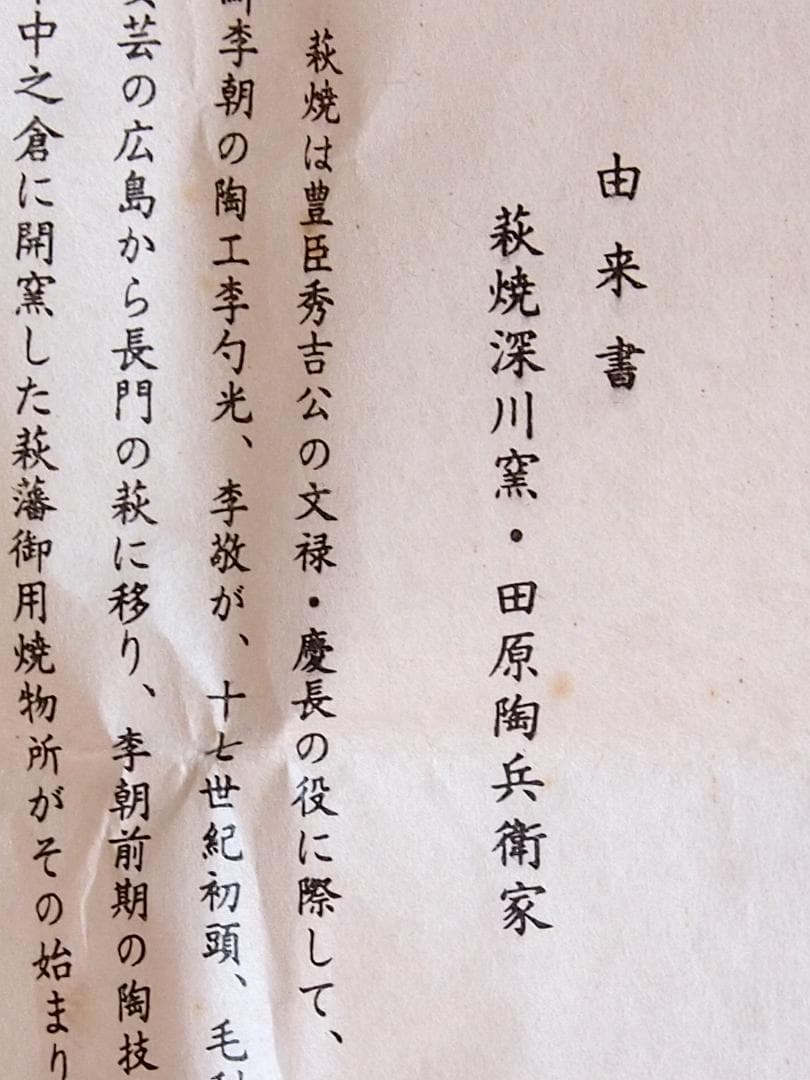 由来書
萩焼深川窯・田原陶兵衛家
萩焼は豊臣秀吉公の文禄・慶長の役に際して、
李朝の陶工李勺光、李敬が、十七世紀初頭、毛
芸の広島から長門の萩に移り、李朝前期の陶技
中之倉に開窯した萩藩御用焼物所がその始まり